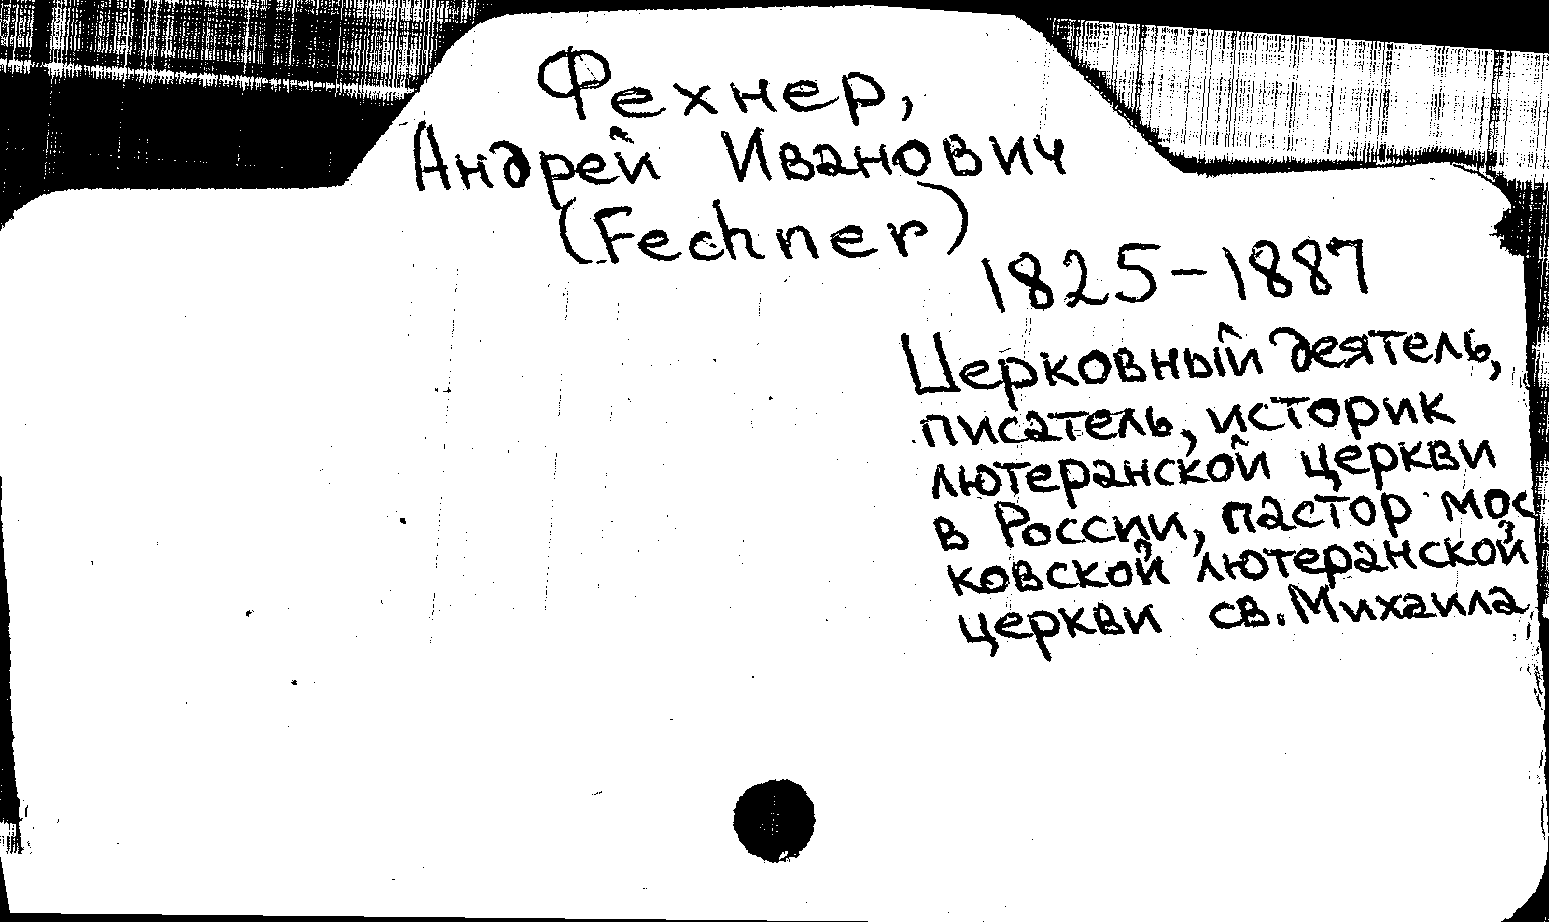 Фехнер,
Андрей Иванович
(Fechner)
1825-1887
Церковный деятель,
писатель, историк
лютеранской церкви
в России, пастор мос
ковской лютеранской
церкви св. Михаила